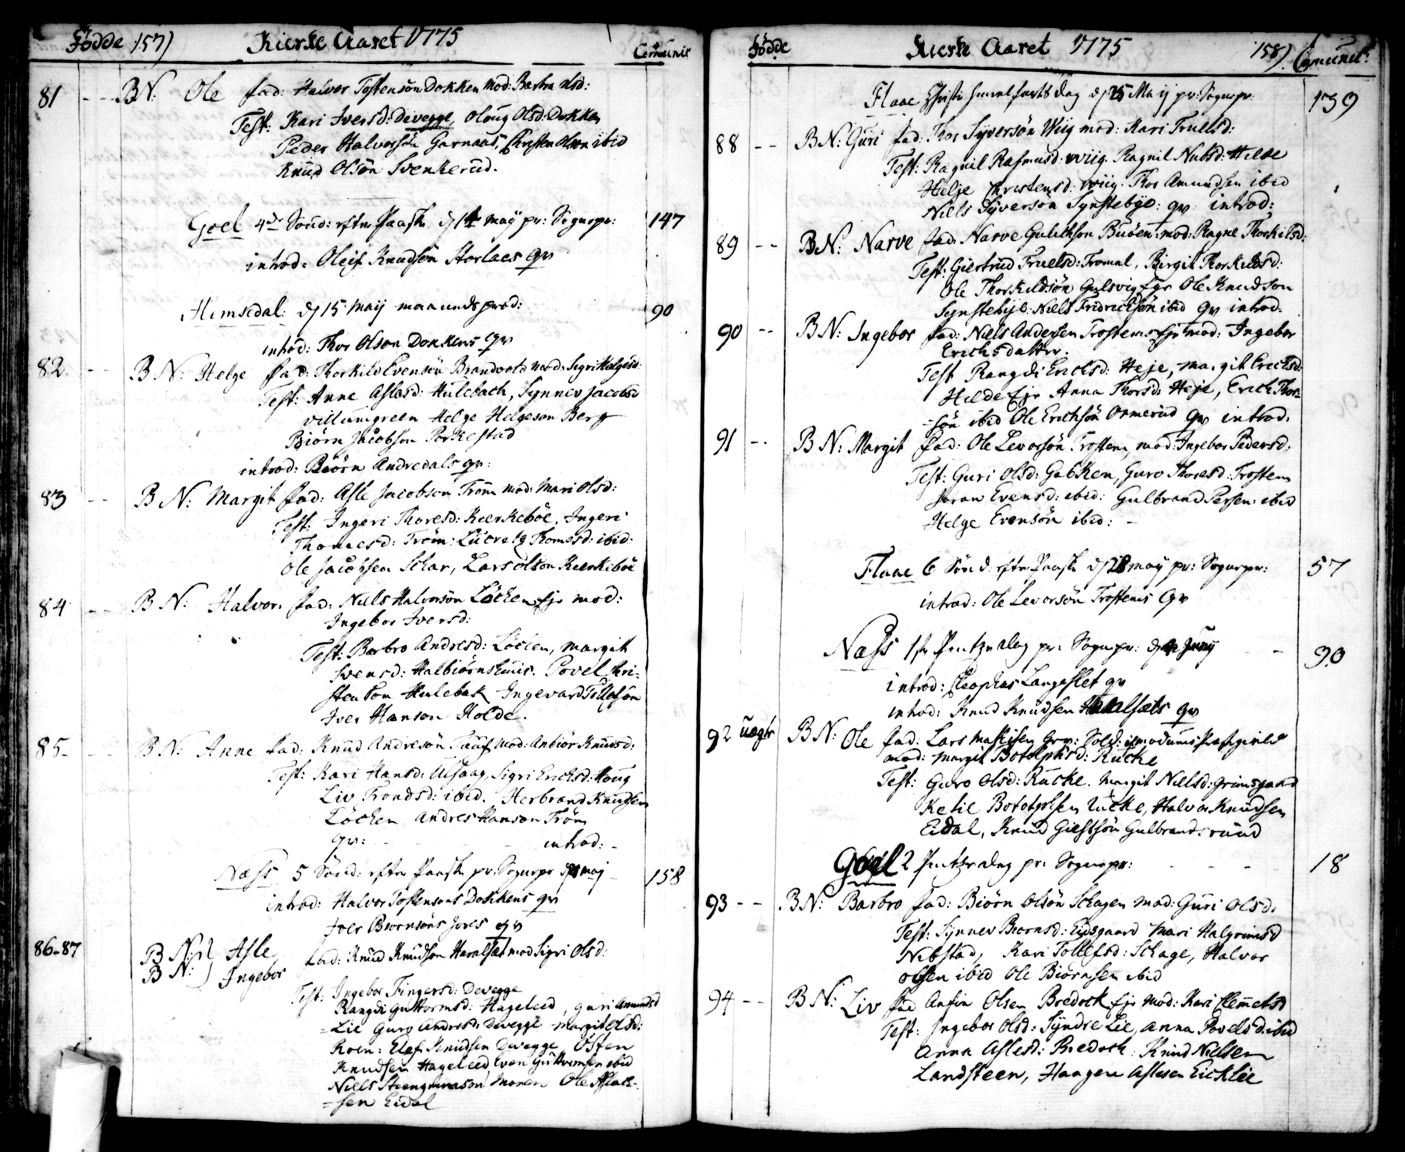 Fødde 157) Kirke Aaret 1775 Comunic:
81 -- BN: Ole fad: Halvor Tostensøn Dokken mod: Barbra Olsd:
Test: Kari Iversd: Devegge, Oloug Olsd: Dokken
Peder Halvorsøn Garnaas, Christen Olson ibid
Knud Olsøn Svenkerud.
Goel 4de Sønd: efter Paask d. 14 Maij pr: Sognepr: 147
introd: Oleif Knudsøn Storlaes qv
Hemsedal d 15 Maij maanedspræd: 90
introd: Thor Olson Dokkens qv
82 -- BN: Helge fad: Thorkild Evensøn Brandvold mod: Sigri Helgesd:
Test: Anne Aslesd: Hulebach, Synnev Jacobsd
Villumgreen Helge Helgeson Berg
Biørn Jacobson Torkestad
introd: Biørn Andredals qv:
83 -- BN: Margit fad: Asle Jacobson Trøm mod: Mari Olsd:
Test: Ingeri Thoresd: Kierkebøe, Ingeri
Thomesd: Trøm: Thomesd: ibid:
Ole Jacobsen Skar, Lars Olson Kierkebøe
84 -- BN: Halvor fad: Niels Halvorsøn Løkken Eje mod:
Ingebor Iversd:
Test: Barbro Andresd: Løkken, Margit
Svensd: Halbiørnshuus. Povel Chri-
stenson Hulebak Ingevard Olefsøn
Iver Hanson Holde.
85 -- BN: Anne fad: Knud Andresøn Tuuf mod: Anbior Knudsd:
Test: Kari Hansd: Ulsaag, Sigri Erichsd: Houg
Liv Trondsd: ibid. Herbrand Knudsen
Løkken, Andres Hanson Trøm
qv: introd: -
Næss 5 Sønd: efter Paask pr: Sognepr d 21 maj 158
introd: Halvor Tostensens Dokkens qv
Iver Biornsøns Jores qv
86-87 BN: Asle
BN: Ingebor fad: Knud Knudson Haralset mod Sigri Olsd:
Test: Ingebor Fingersd: Devegge
Rangdi Guttormsd: Hagaleed, Guri Amundsd
Lie Guro Andresd: Devegge Margit Olsd:
Roen: Elef Knudsen Devegge, Østen
Knudsen Hageleed Even Guttormsen ibid
Niells Steengrimson Moren Ole Aslak-
=sen Eidal
Fødde Kirke Aaret 1775 158) Comunic:
Flaae Christi himmelfarts dag d 25 Maij pr: Sognepr: 139
88 -- BN: Guri fad: Thor Syversøn Wiig mod: Kari Truelsd:
Test: Ragnil Rasmusd: Wiig Ragnil Nubsd: Hilde
Helje Christensd: Wiig. Thor Amundsen ibid
Niels Syverson Synstebye: qv: introd:
89 -- BN: Narve fad: Narve Gulikson Buøen: mod: Ragne Thorkildsd:
Test: Giertrud Truelsd: Tromal, Birgit Thorkildsd:
Ole Thorkildsøn Gulsvig Eje Ole Knudson
Synstebye: Niels Fridrichsøn ibid qv introd.
90 -- BN: Ingebor fad: Niels Andersen Trostems Eje mod: Ingebor
Erichsdatter.
Test Rangdi Erichsd: Heje, Margit Erichsd:
Hilde Eje Anna Thorsd: Heje, Erich Thor-
-søn ibid Ole Erichsøn Ormerud qv introd.
91 -- BN: Margit fad: Ole Levorsøn Trostem mod: Ingebor Pedersd:
Test: Guri Olsd: Gabken, Guro Thoresd: Trostem
Evensd: ibid: Gulbrand Persen ibid
Helge Evensøn ibid: -
Flaae 6 Sønd efter Paask d 28 maij pr: Sognepr: 57
introd: Ole Levorsøn Trostems qv
Næss 1ste Pintzedag pr: Sognepr: d 4 Junij -- 90
introd: Cleophas Langeslet qv
introd: Knud Knudsen Haralsets qv
92 uægte BN: Ole fad: Lars Gev: Sold:
mod: Margit Botolphsd: Rucke
Test: Guro Olsd: Rucke. Margit Nielsd: Grimsgaard
Ketil Botolphsen Rucke, Halvor Knudsen
Eidal, Knud Giestsøn Gulbrandsruud
Goel 2 Pintzedag pr: Sognepr: - - - 18
93 -- BN: Barbro fad: Biørn Olsøn Skagen mod: Guri Olsd.
Test: Synnev Biornsd: Eidsgaard Mari Halgrimsd
Nibstad, Kari Tollefsd: Skage, Halvor
Olsen ibid Ole Biørnsen ibid
94 -- BN: Liv fad Anfin Olsen Bredock Eje mod: Kari Clemmetsd
Test: Ingebor Olsd: Syndre Lie, Anna Povelsd: ibid
Anna Aslesd: Bredock. Knud Nielsen
Landsteen, Haagen Aslesen Eicklie